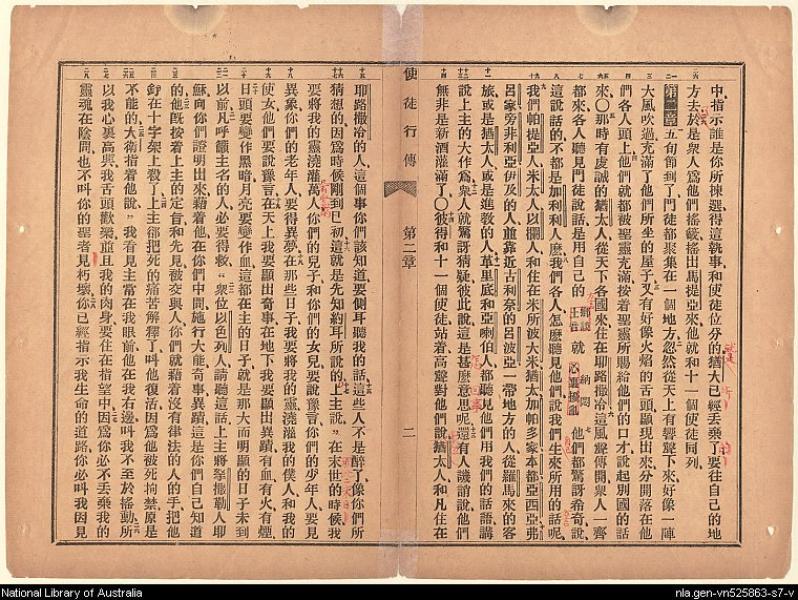 中、指示誰是你所揀選、得這執事和使徒位分的、猶大已經丟棄了、要往自己的地
方去、於是衆人爲他們搖籤、搖出馬提亞來、他就和十一個使徒同列、
第二章 五旬節到了、門徒都聚集在一個地方、忽然從天上有響聲下來、好像一陣
大風吹過、充滿了他們所坐的屋子、又有好像火焰的舌頭顯現出來、分開落在他
們各人頭上、他們就都被聖靈充滿、按着聖靈所賜給他們的口才、說起別國的話
來、○那時有虔誠的猶太人、從天下各國來、住在耶路撒冷、這風聲傳開、衆人一齊
都來、各人聽見門徒說話、是用自己的 就 他們都驚訝希奇、說、
這說話的不都是加利利人麽、我們各人怎麽聽見他們說我們生來所用的話呢、
我們帕提亞人、米太人、以攔人、和住在米所波大米、猶太、加帕多家、本都、亞西亞、弗
呂家、旁非利亞、伊及的人、並靠近古利奈的呂波亞一帶地方的人、從羅馬來的客
旅、或是猶太人、或是進教的人、革里底和亞喇伯人、都聽見他們用我們的話語、講
說上主的大作爲、衆人就驚訝猜疑、彼此說、這是甚麽意思呢、還有人譏誚說、他們
無非是新酒灌滿了、○彼得和十一個使徒站着、高聲對他們說、猶太人、和凡住在
使徒行傳 第二章 二
耶路撒冷的人、這個事你們該知道、要側耳聽我的話、這些人不是醉了、像你們所
猜想的、因爲時候剛到巳初、這就是先知約耳所說的、上主說、在末世的時候、我
要將我的靈澆灌萬人、你們的兒子和你們的女兒要說豫言、你們的少年人要見
異象、你們的老年人要得異夢、在那些日子、我要將我的靈澆灌我的僕人和我的
使女、他們要說豫言、在天上我要顯出奇事、在地下我要顯出異蹟、有血有火有煙、
日頭要變作黑暗、月亮要變作血、這都在主的日子、就是那大而明顯的日子未到
以前、凡呼籲主名的人必要得救、衆位以色列人、請聽這話、上主將拏撒勒人耶
穌、向你們證明出來、藉着他在你們中間施行大能奇事異蹟、這是你們自己知道
的、他旣按着上主的定旨和先見被交與人、你們就藉着沒有律法的人的手、把他
釘在十字架上殺了、上主卻把死的痛苦解釋了、叫他復活、因爲他被死拘禁、原是
不能的、大衞指着他說、我看見主常在我眼前、他在我右邊、叫我不至於搖動、所
以我心裏高興、我舌頭歡樂、並且我的肉身、要住在指望中、因爲你必不丟棄我的
靈魂在陰間、也不叫你的聖者見朽壞、你已經指示我生命的道路、你必叫我因見
National Library of Australia
nla.gen-vn525863-s7-v